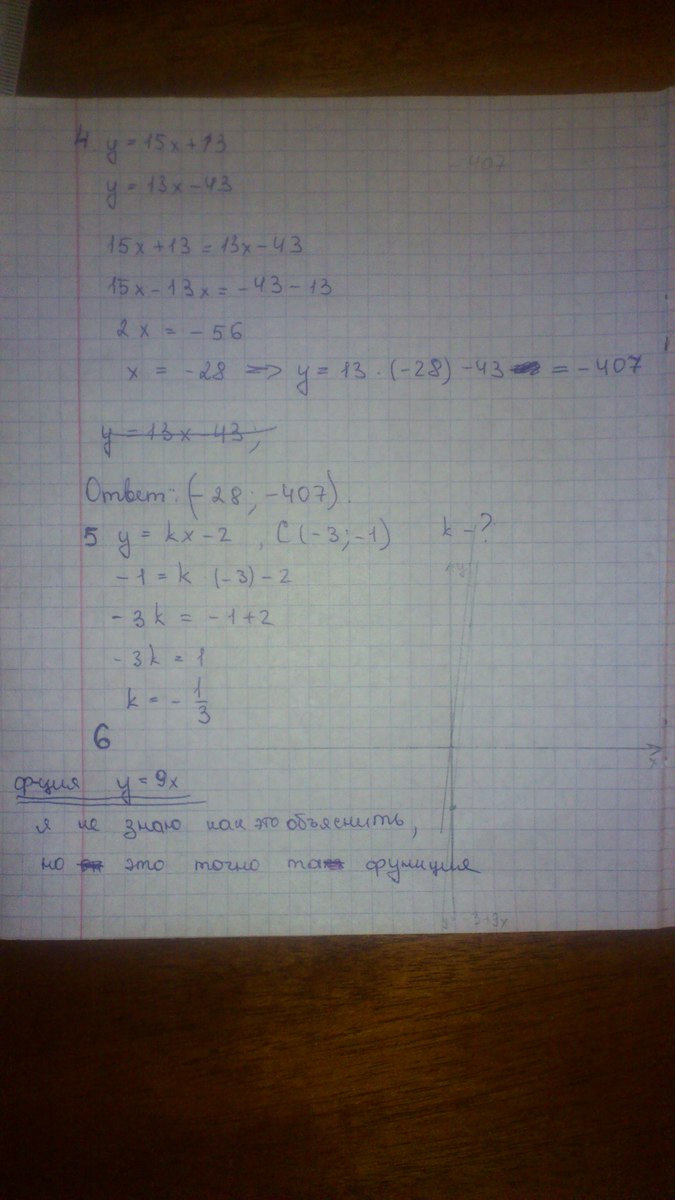 4 y = 15x + 13
- 407
y = 13x - 43
15x + 13 = 13x - 43
15x - 13x = -43 - 13
2x = -56
x = -28 => y = 13 · (-28) - 43 = -407
y = 13x - 43;
Ответ: (-28; -407).
5 y = kx - 2 , C (-3; -1) k - ?
-1 = k (-3) - 2
-3k = -1 + 2
-3k = 1
k = - 1/3
6
x
ф-ция y = 9x
я не знаю как это объяснить,
но это точно та функция
3+3x